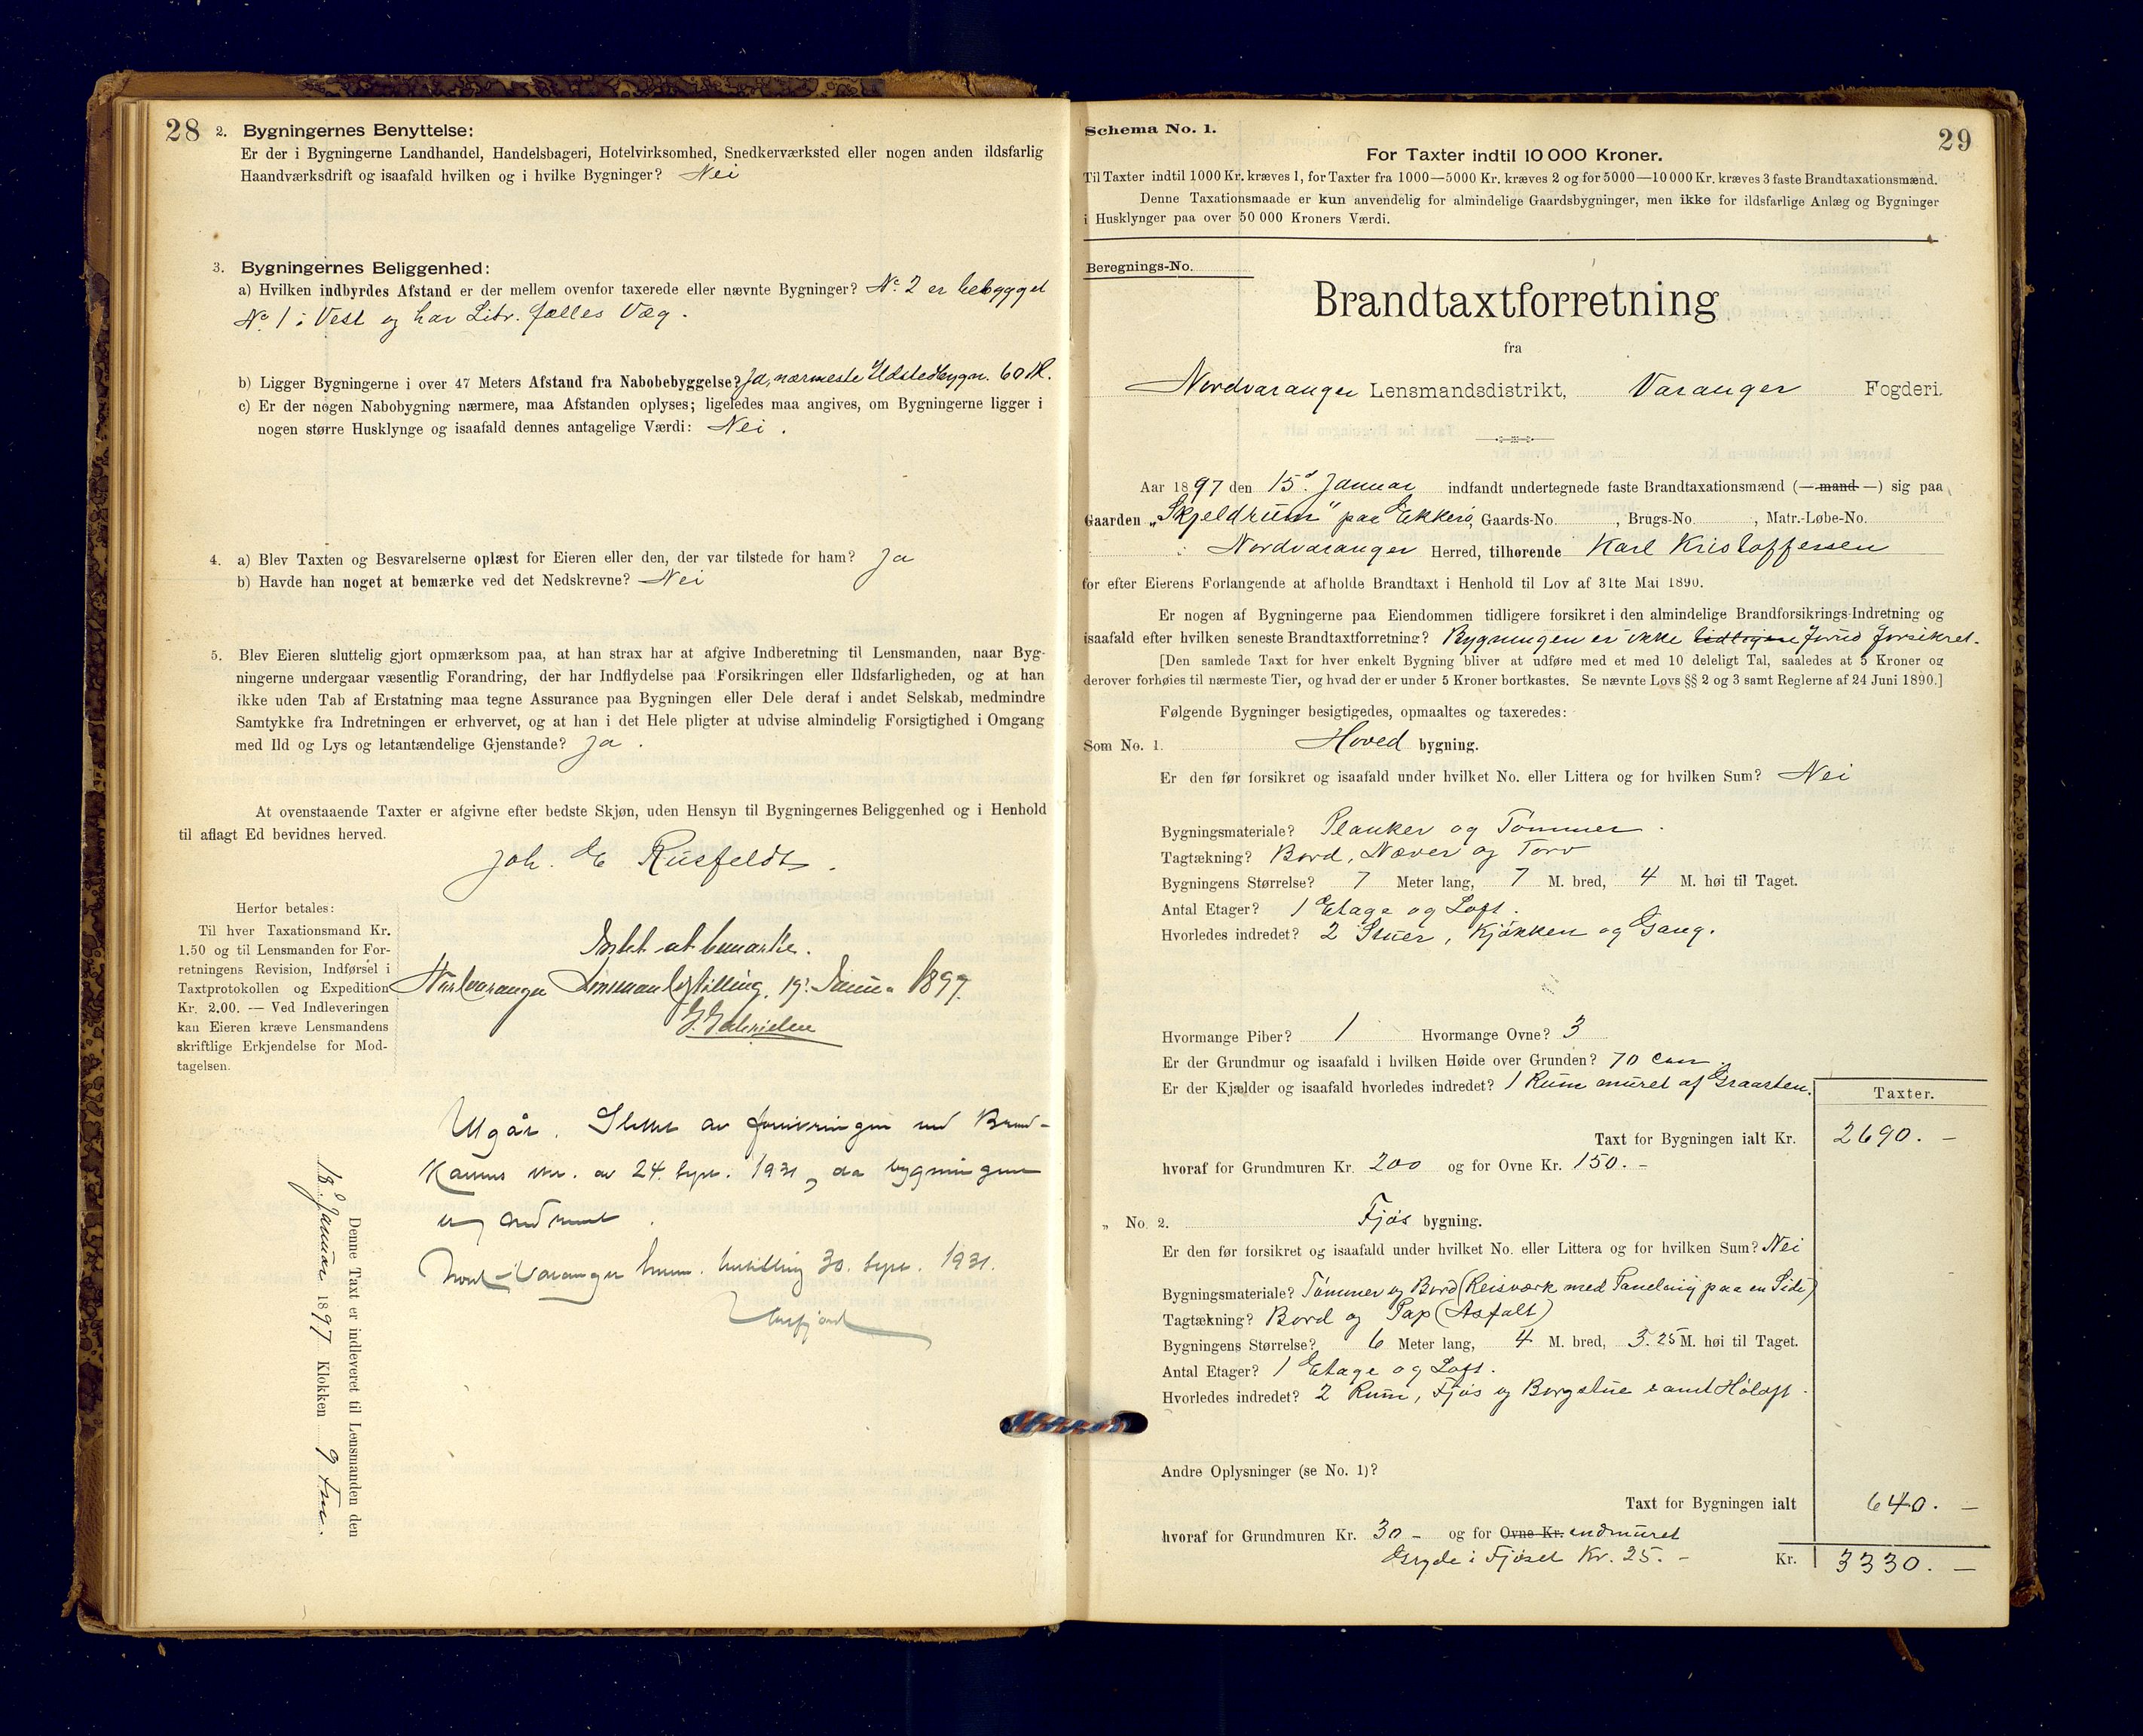 28
2. Bygningernes Benyttelse:
Er der i Bygningerne Landhandel, Handelsbageri, Hotelvirksomhed, Snedkerværksted eller nogen anden ildsfarlig
Haandværksdrift og isaafald hvilken og i hvilke Bygninger? Nei
3. Bygningernes Beliggenhed:
a) Hvilken indbyrdes Afstand er der mellem ovenfor taxerede eller nævnte Bygninger? No. 2 er bebygget
No. 1 i Vest og har Litr. fælles Væg.
b) Ligger Bygningerne i over 47 Meters Afstand fra Nabobebyggelse? Ja, nærmeste Ildstedbygn. 60 M.
c) Er der nogen Nabobygning nærmere, maa Afstanden oplyses; ligeledes maa angives, om Bygningerne ligger i
nogen større Husklynge og isaafald dennes antagelige Værdi: Nei.
4. a) Blev Taxten og Besvarelserne oplæst for Eieren eller den, der var tilstede for ham? Ja
b) Havde han noget at bemærke ved det Nedskrevne? Nei
5. Blev Eieren sluttelig gjort opmærksom paa, at han strax har at afgive Indberetning til Lensmanden, naar Byg-
ningerne undergaar væsentlig Forandring, der har Indflydelse paa Forsikringen eller Ildsfarligheden, og at han
ikke uden Tab af Erstatning maa tegne Assurance paa Bygningen eller Dele deraf i andet Selskab, medmindre
Samtykke fra Indretningen er erhvervet, og at han i det Hele pligter at udvise almindelig Forsigtighed i Omgang
med Ild og Lys og letantændelige Gjenstande? Ja.
At ovenstaaende Taxter er afgivne efter bedste Skjøn, uden Hensyn til Bygningernes Beliggenhed og i Henhold
til aflagt Ed bevidnes herved.
Joh. E Rusfeldt.
Herfor betales:
Til hver Taxationsmand Kr.
1.50 og til Lensmanden for For-
retningens Revision, Indførsel i
Taxtprotokollen og Expedition
Kr. 2.00. — Ved Indleveringen
kan Eieren kræve Lensmandens
skriftlige Erkjendelse for Mod-
tagelsen.
Intet at bemærke.
Nordvaranger Lensmandsbestilling, 19. Januar 1897.
Utgår. Slettet av forsikringen ved Brand-
Kassens skr. av 24. sept. 1931, da bygningene
er nedrevet.
Nord-Varanger lensm. bestilling 30. sept. 1931.
Denne Taxt er indleveret til Lensmanden den
18. Januar 1897 Klokken 9 Fm.
29
Schema No. 1.
For Taxter indtil 10 000 Kroner.
Til Taxter indtil 1000 Kr. kræves 1, for Taxter fra 1000—5000 Kr. kræves 2 og for 5000—10 000 Kr. kræves 3 faste Brandtaxationsmænd.
Denne Taxationsmaade er kun anvendelig for almindelige Gaardsbygninger, men ikke for ildsfarlige Anlæg og Bygninger
i Husklynger paa over 50 000 Kroners Værdi.
Beregnings-No.
Brandtaxtforretning
fra
Nordvaranger Lensmandsdistrikt, Varanger Fogderi.
Aar 1897 den 15d. Januar indfandt undertegnede faste Brandtaxationsmænd (—mand—) sig paa
Gaarden „Skjeldrum" paa Ekkerø, Gaards-No. , Brugs-No. , Matr.-Løbe-No.
i Nordvaranger Herred, tilhørende Karl Kristoffersen
for efter Eierens Forlangende at afholde Brandtaxt i Henhold til Lov af 31te Mai 1890.
Er nogen af Bygningerne paa Eiendommen tidligere forsikret i den almindelige Brandforsikrings-Indretning og
isaafald efter hvilken seneste Brandtaxtforretning? Bygningen er ikke tidligere forud forsikret.
[Den samlede Taxt for hver enkelt Bygning bliver at udføre med et med 10 deleligt Tal, saaledes at 5 Kroner og
derover forhøies til nærmeste Tier, og hvad der er under 5 Kroner bortkastes. Se nævnte Lovs §§ 2 og 3 samt Reglerne af 24 Juni 1890.]
Følgende Bygninger besigtigedes, opmaaltes og taxeredes:
Som No. 1. Hoved bygning.
Er den før forsikret og isaafald under hvilket No. eller Littera og for hvilken Sum? Nei
Bygningsmateriale? Planker og Tømmer.
Tagtækning? Bord, Næver og Torv
Bygningens Størrelse? 7 Meter lang, 7 M. bred, 4 M. høi til Taget.
Antal Etager? 1 Etage og Loft.
Hvorledes indredet? 2 Stuer, Kjøkken og Gang.
Hvormange Piber? 1 Hvormange Ovne? 3
Er der Grundmur og isaafald i hvilken Høide over Grunden? 70 cm.
Er der Kjælder og isaafald hvorledes indredet? 1 Rum muret af Graasten.
Taxter.
Taxt for Bygningen ialt Kr. 2690. —
hvoraf for Grundmuren Kr. 200 og for Ovne Kr. 150. —
„ No. 2. Fjøs bygning.
Er den før forsikret og isaafald under hvilket No. eller Littera og for hvilken Sum? Nei
Bygningsmateriale? Tømmer og Bord (Reisværk med Paneling paa en Side)
Tagtækning? Bord og Pap (Asfalt)
Bygningens Størrelse? 6 Meter lang, 4 M. bred, 3.25 M. høi til Taget.
Antal Etager? 1 Etage og Loft.
Hvorledes indredet? 2 Rum, Fjøs og Borgstue samt Høloft.
Andre Oplysninger (se No. 1)?
Taxt for Bygningen ialt 640. —
hvoraf for Grundmuren Kr. 30 — og for Ovne Kr. indmuret
Gryde i Fjøset Kr. 25. —
Kr. 3330. —